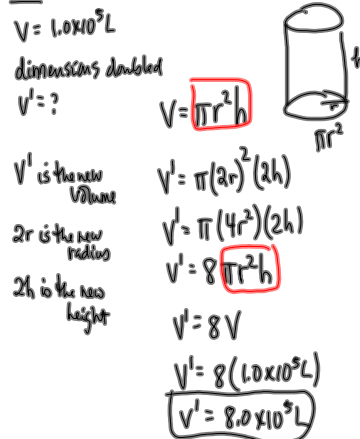 V = 1.0x10⁵L
dimensions doubled
V' = ?
V' is the new
Volume
2r is the new
radius
2h is the new
height
h
r
πr²
V = πr²h
V' = π(2r)²(2h)
V' = π(4r²)(2h)
V' = 8πr²h
V' = 8V
V' = 8(1.0x10⁵L)
V' = 8.0x10⁵L